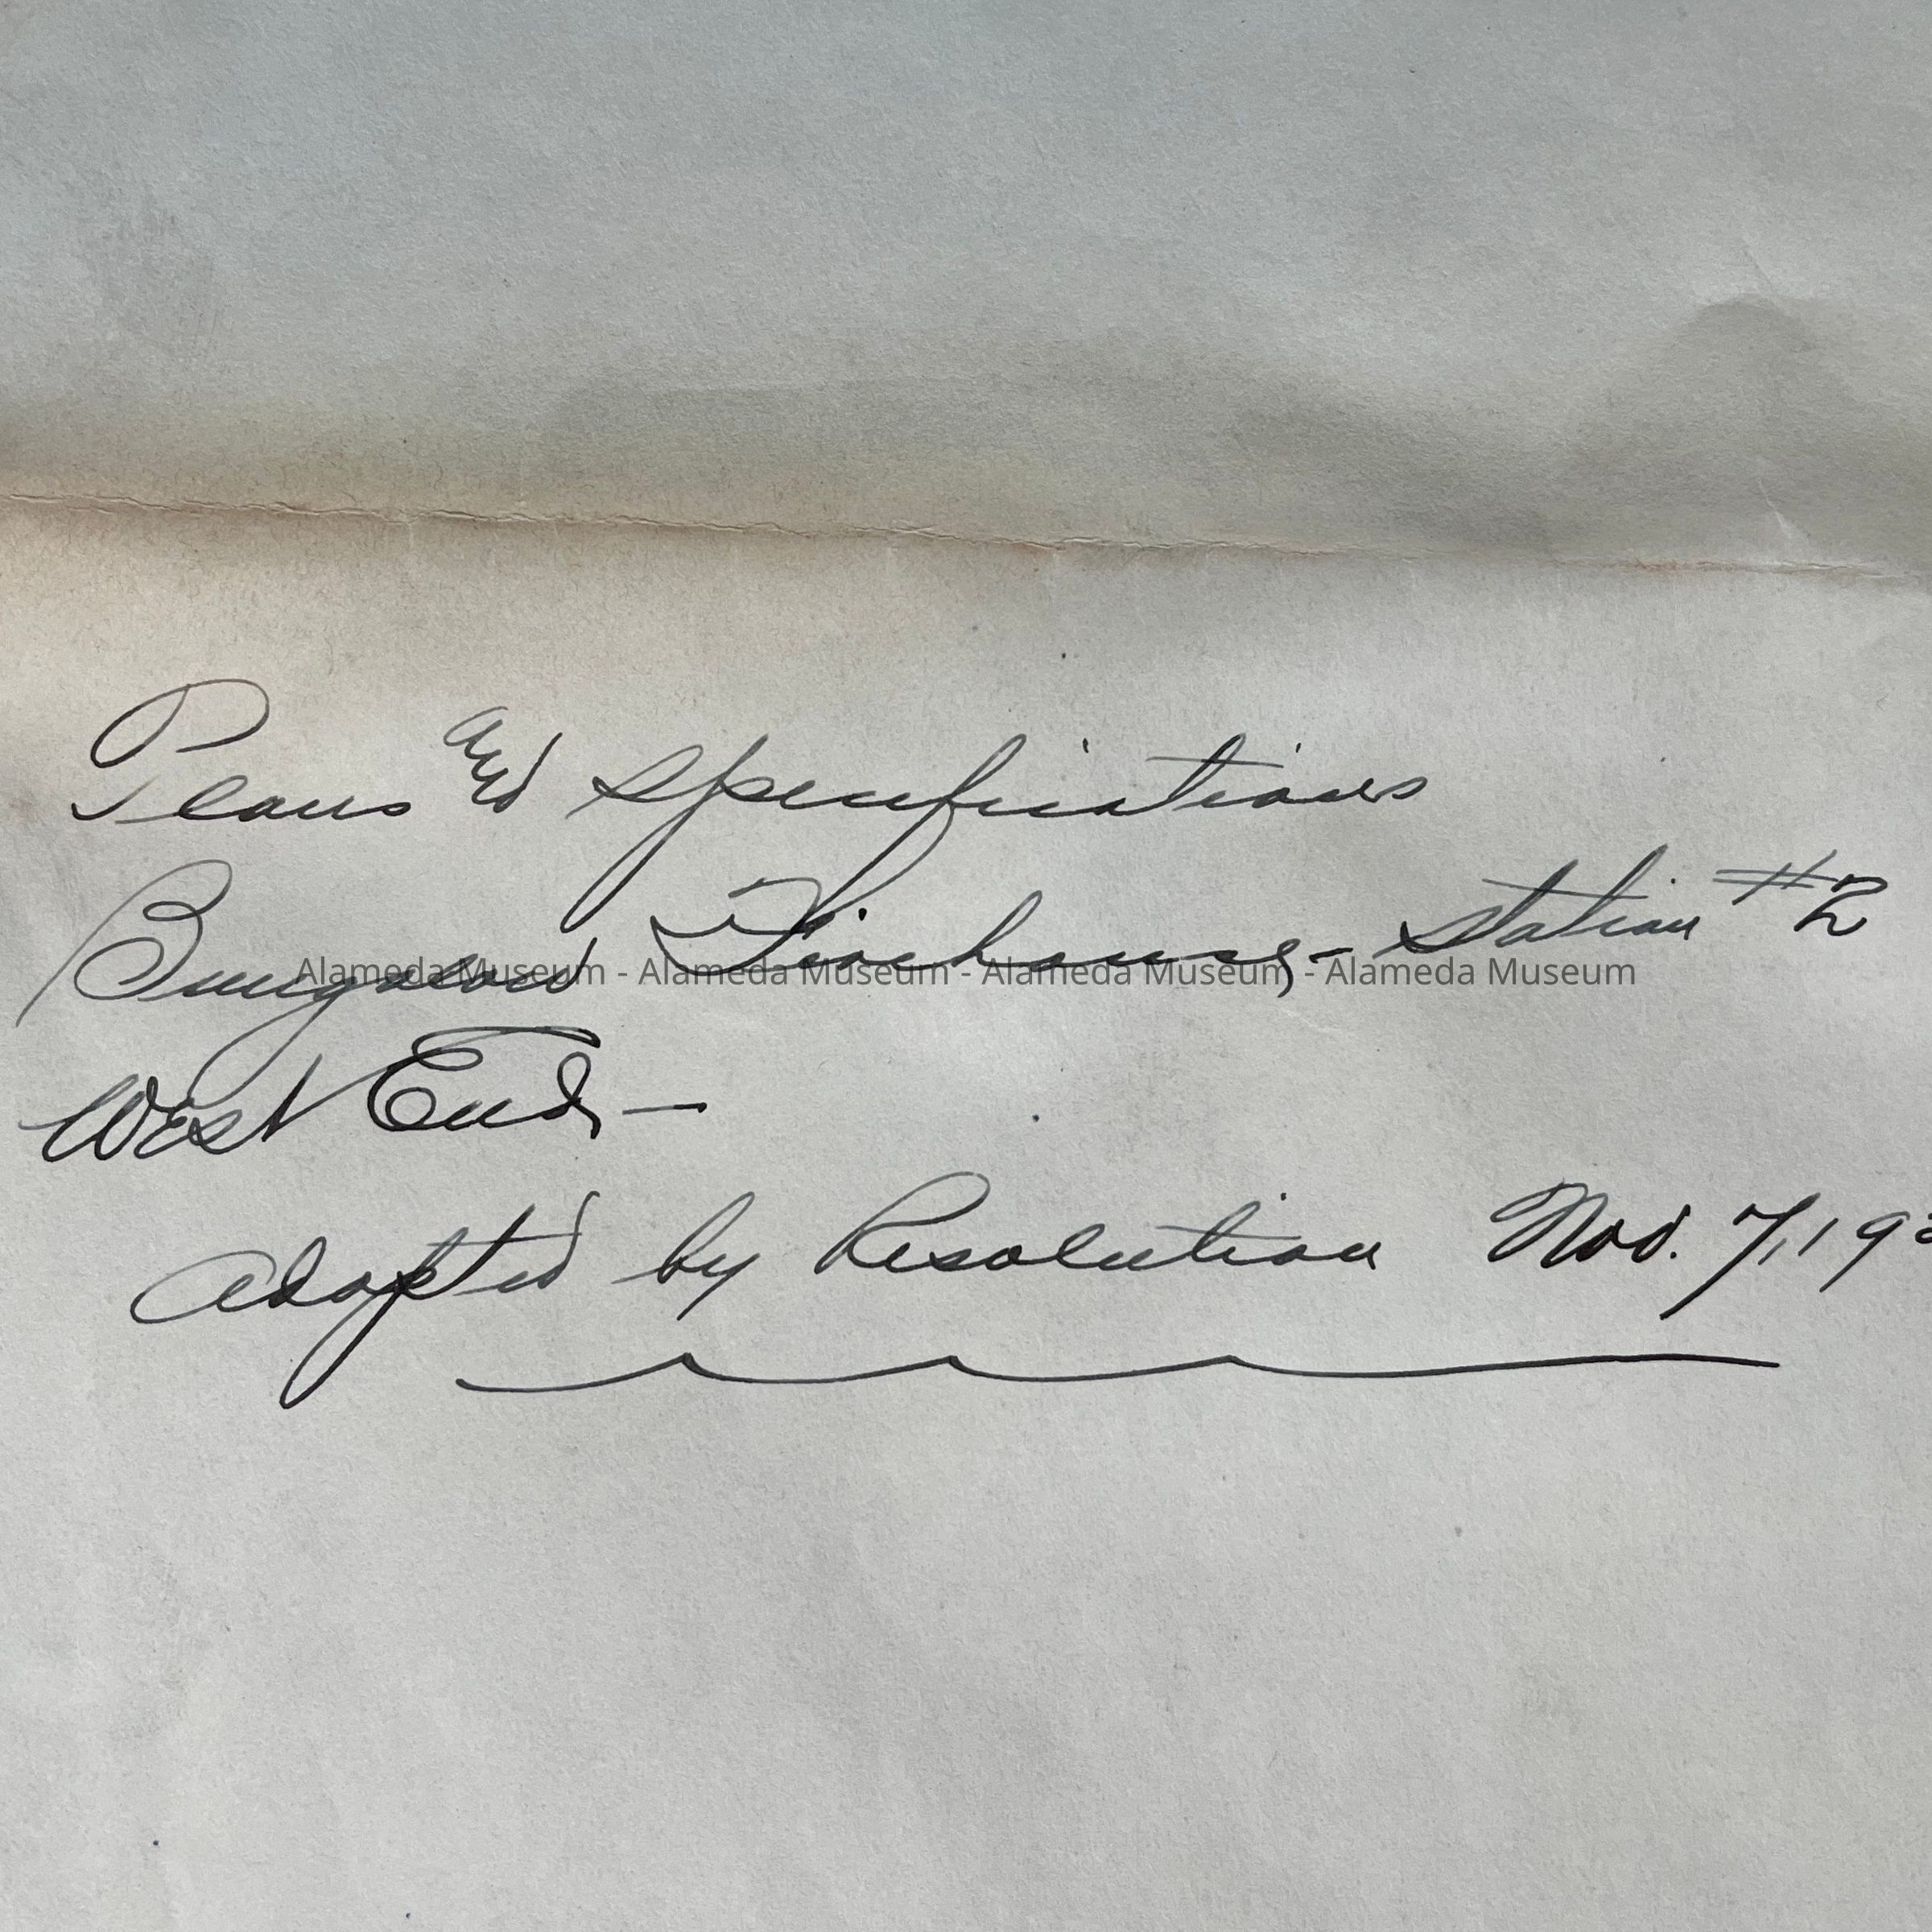 Plans and Specifications
Bungalow Firehouse - Station #2
Alameda Museum - Alameda Museum - Alameda Museum - Alameda Museum
West End -
Adopted by Resolution Nov. 7, 19